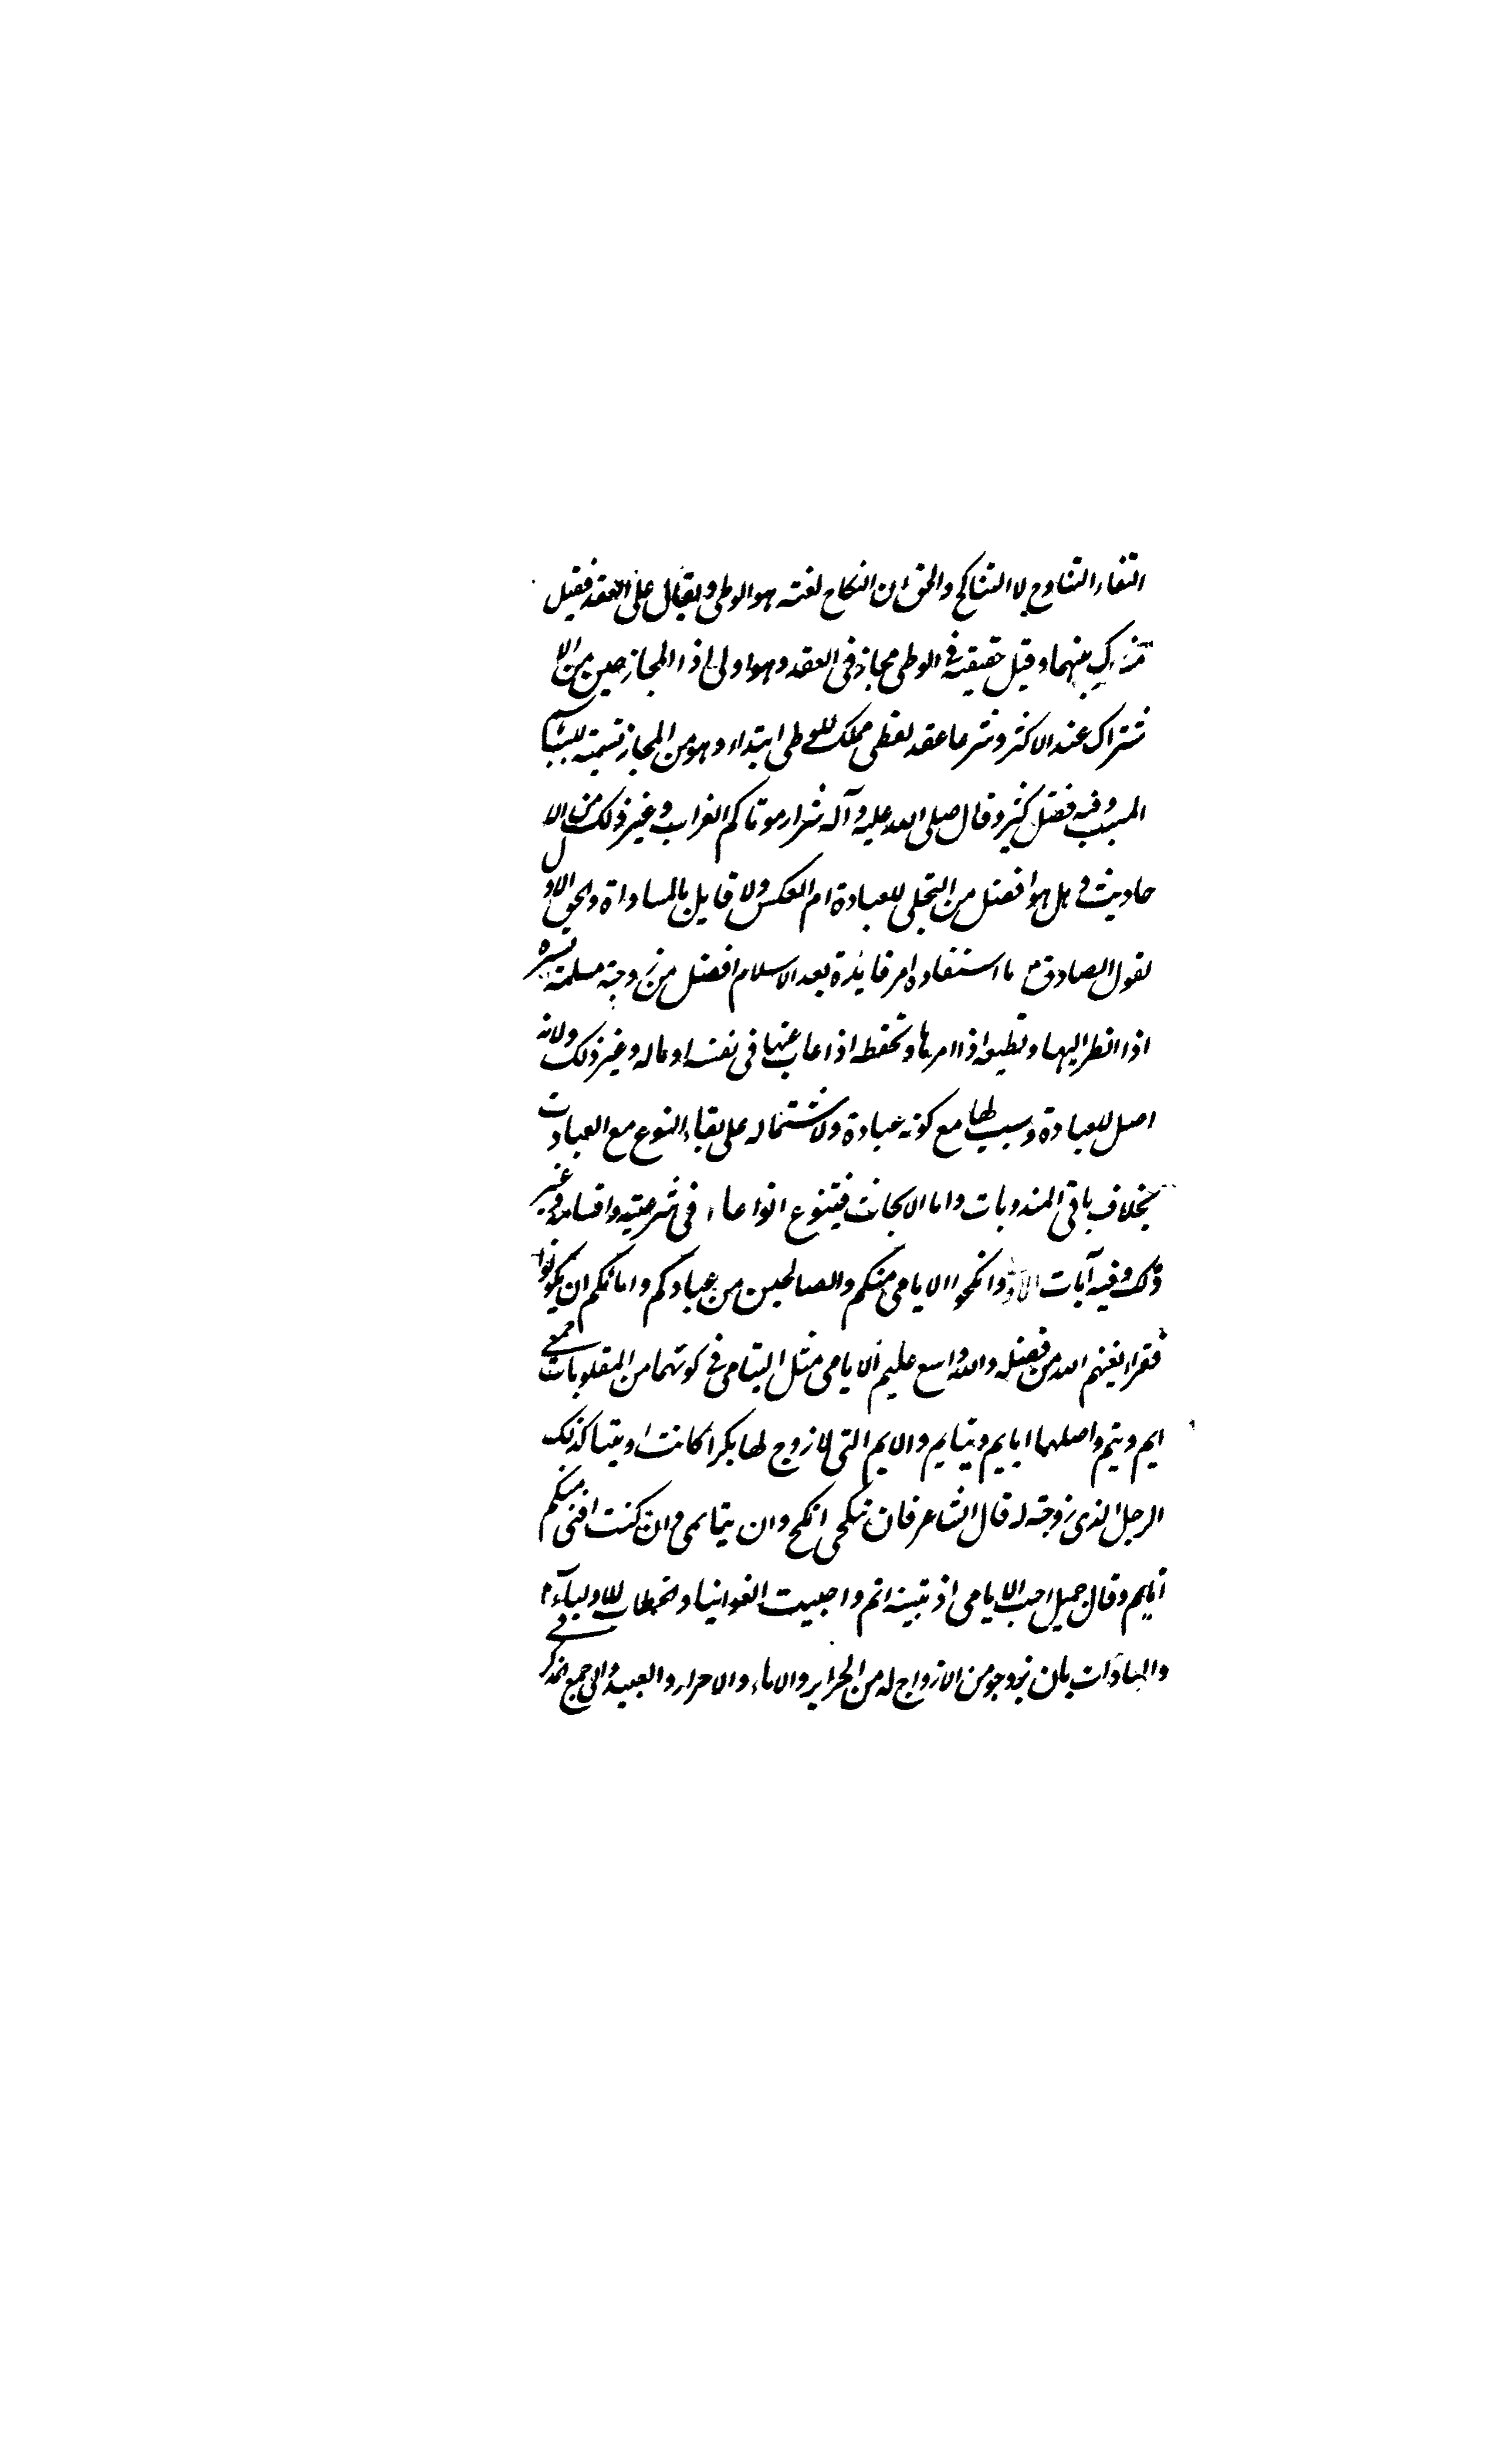 التقاء التناوح لا التناكح والحق ان النكاح لغته هو الوطى ويقال على العقد فقيل
مشترك بينهما وقيل حقيقته فى الوطى مجاز فى العقد وهو اولى اذا المجاز حين من الا
شتراك عند الاكثر وشرعا عقد لفظى مملك للوطى ابتداء وهو من المجاز تسميته للسبب باسم
المسبب وفيه فضل كثير وقال صلى الله عليه وآله شرار موتاكم العزاب وغير ذلك من الا
حاديث وهل هو افضل من التخلى للعبادة ام العكس ولا قايل بالمساواة والحق الاول
لقول الصادق ع ما استفاد امر فايدة بعد الاسلام افضل من زوجته مسلمته تسره
اذا انظر اليها وتطيعه اذا امرها وتحفظه اذا غاب عنها فى نفسه او ماله وغير ذلك ولانه
اصل للعبادة وسبب لها مع كونه عبادة ولاشتماله على بقاء النوع مع العبادت
بخلاف باقى المندوبات واما الابحاث فيتنوع انواعاء فى شرعيته واقسامه وغير
ذلك وفيه آيات وانكحوا الايامى منكم والصالحين من عبادكم وامائكم ان يكونوا
فقراء يغنهم الله من فضله والله واسع عليم الايامى مثل اليتامى فى كونهما من المقلوبات جمعى
ايم ويتيم واصلهما ايايم ويتايم والايم التى لا زوج لها بكرا كانت او ثيبا كذلك
الرجل الذى زوجته له قال الشاعر فان تنكحى انكح وان يتايمى وان كنت افتى منكم
اتايم وقال جميل احب الايامى اذ بثينه ايم واحببت الغوانيا وخطاب للاولياء
والسادات بان يزوجو من الازواج له من الحراير والاماء والاحرار والعبيد والى جمع المذكر فى